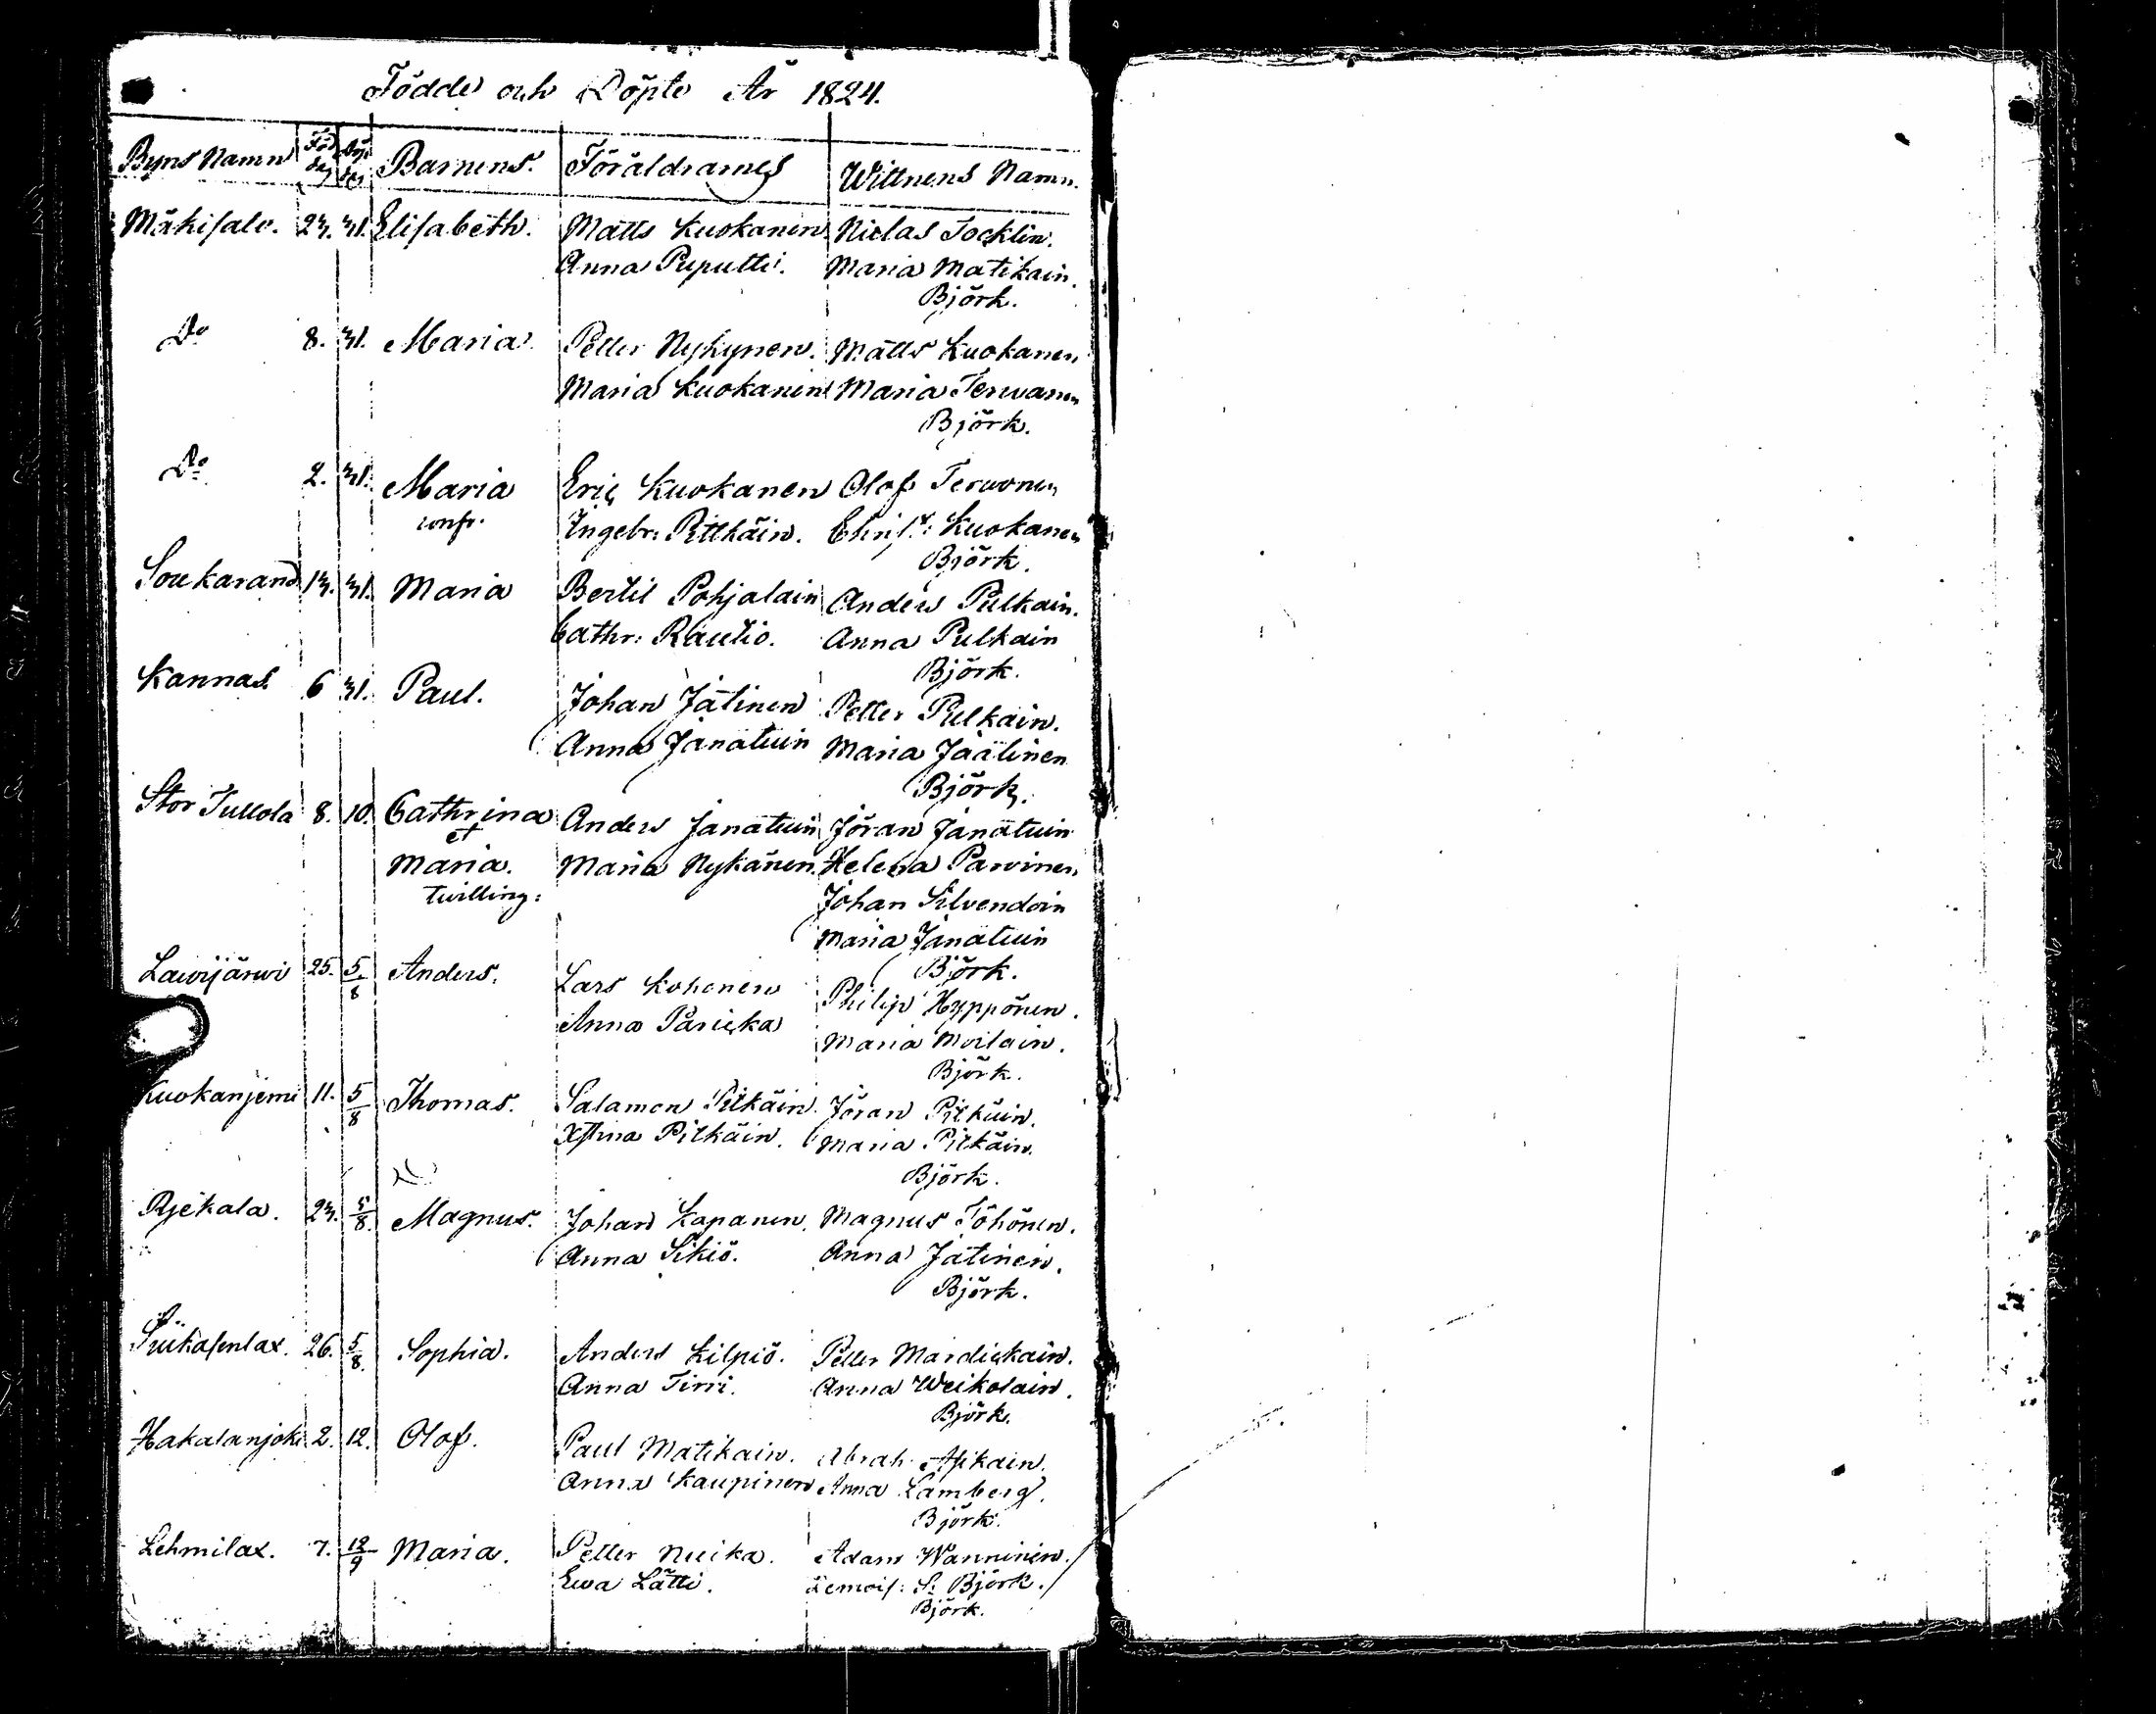 Födde och Döpte År 1824.
Byns Namn Föd. dag Döp. dag Barnens. Föräldrarnes Wittnens Namn.
Mäkisalo. 23. 31. Elisabeth. Matts Kuokanen Niclas Tocklin.
Anna Puputti. Maria Matikain.
Björk.
Do 8. 31. Maria. Petter Nykynen. Matts Kuokanen
Maria Kuokanen Maria Terwanen
Björk.
Do 2. 31. Maria Eric Kuokanen Olof Terwonen
Ingebr: Pitkäin. Christ: Kuokanen
Björk.
Soukarand 13. 31. Maria Bertil Pohjalain Anders Pulkain.
Cathr: Rautio. Anna Pulkain
Björk.
Kannas. 6 31. Paul. Johan Jätinen Petter Pulkain.
Anna Janatuin Maria Jäätinen
Björk.
Stor Tullola 8. 10. Cathrina Anders Janatuin Jöran Janatuin
et
Maria. Maria Nykänen. Helena Parvinen
twilling: Johan Silvendoin
Maria Janatuin
Björk.
Lawijärwi 25. 5/8 Anders. Lars Kohonen Philip Hyppönen.
Anna Päricka Maria Moilain.
Björk.
Kuokanjemi 11. 5/8 Thomas. Salamon Pitkäin. Jöran Pitkäin.
Xstina Pitkäin. Maria Pitkäin.
Björk.
Rjekala. 23. 5/8. Magnus. Johan Kapanen. Magnus Töhönen.
Anna Sikiö. Anna Jätinen.
Björk.
26. 5/8. Sophia. Anders Kilpiö. Petter Mardickain.
Anna Tirri. Anna Weikolain.
Björk.
Hakalanjoki 2. 12. Olof. Paul Matikain. Abrah. Asikain.
Anna Kaupinen Anna Lamberg.
Björk.
Lehmilax. 7. 12/9 Maria. Petter Nuika. Adam Wanninen.
Ewa Lätti. Demois: S: Björk.
Björk.